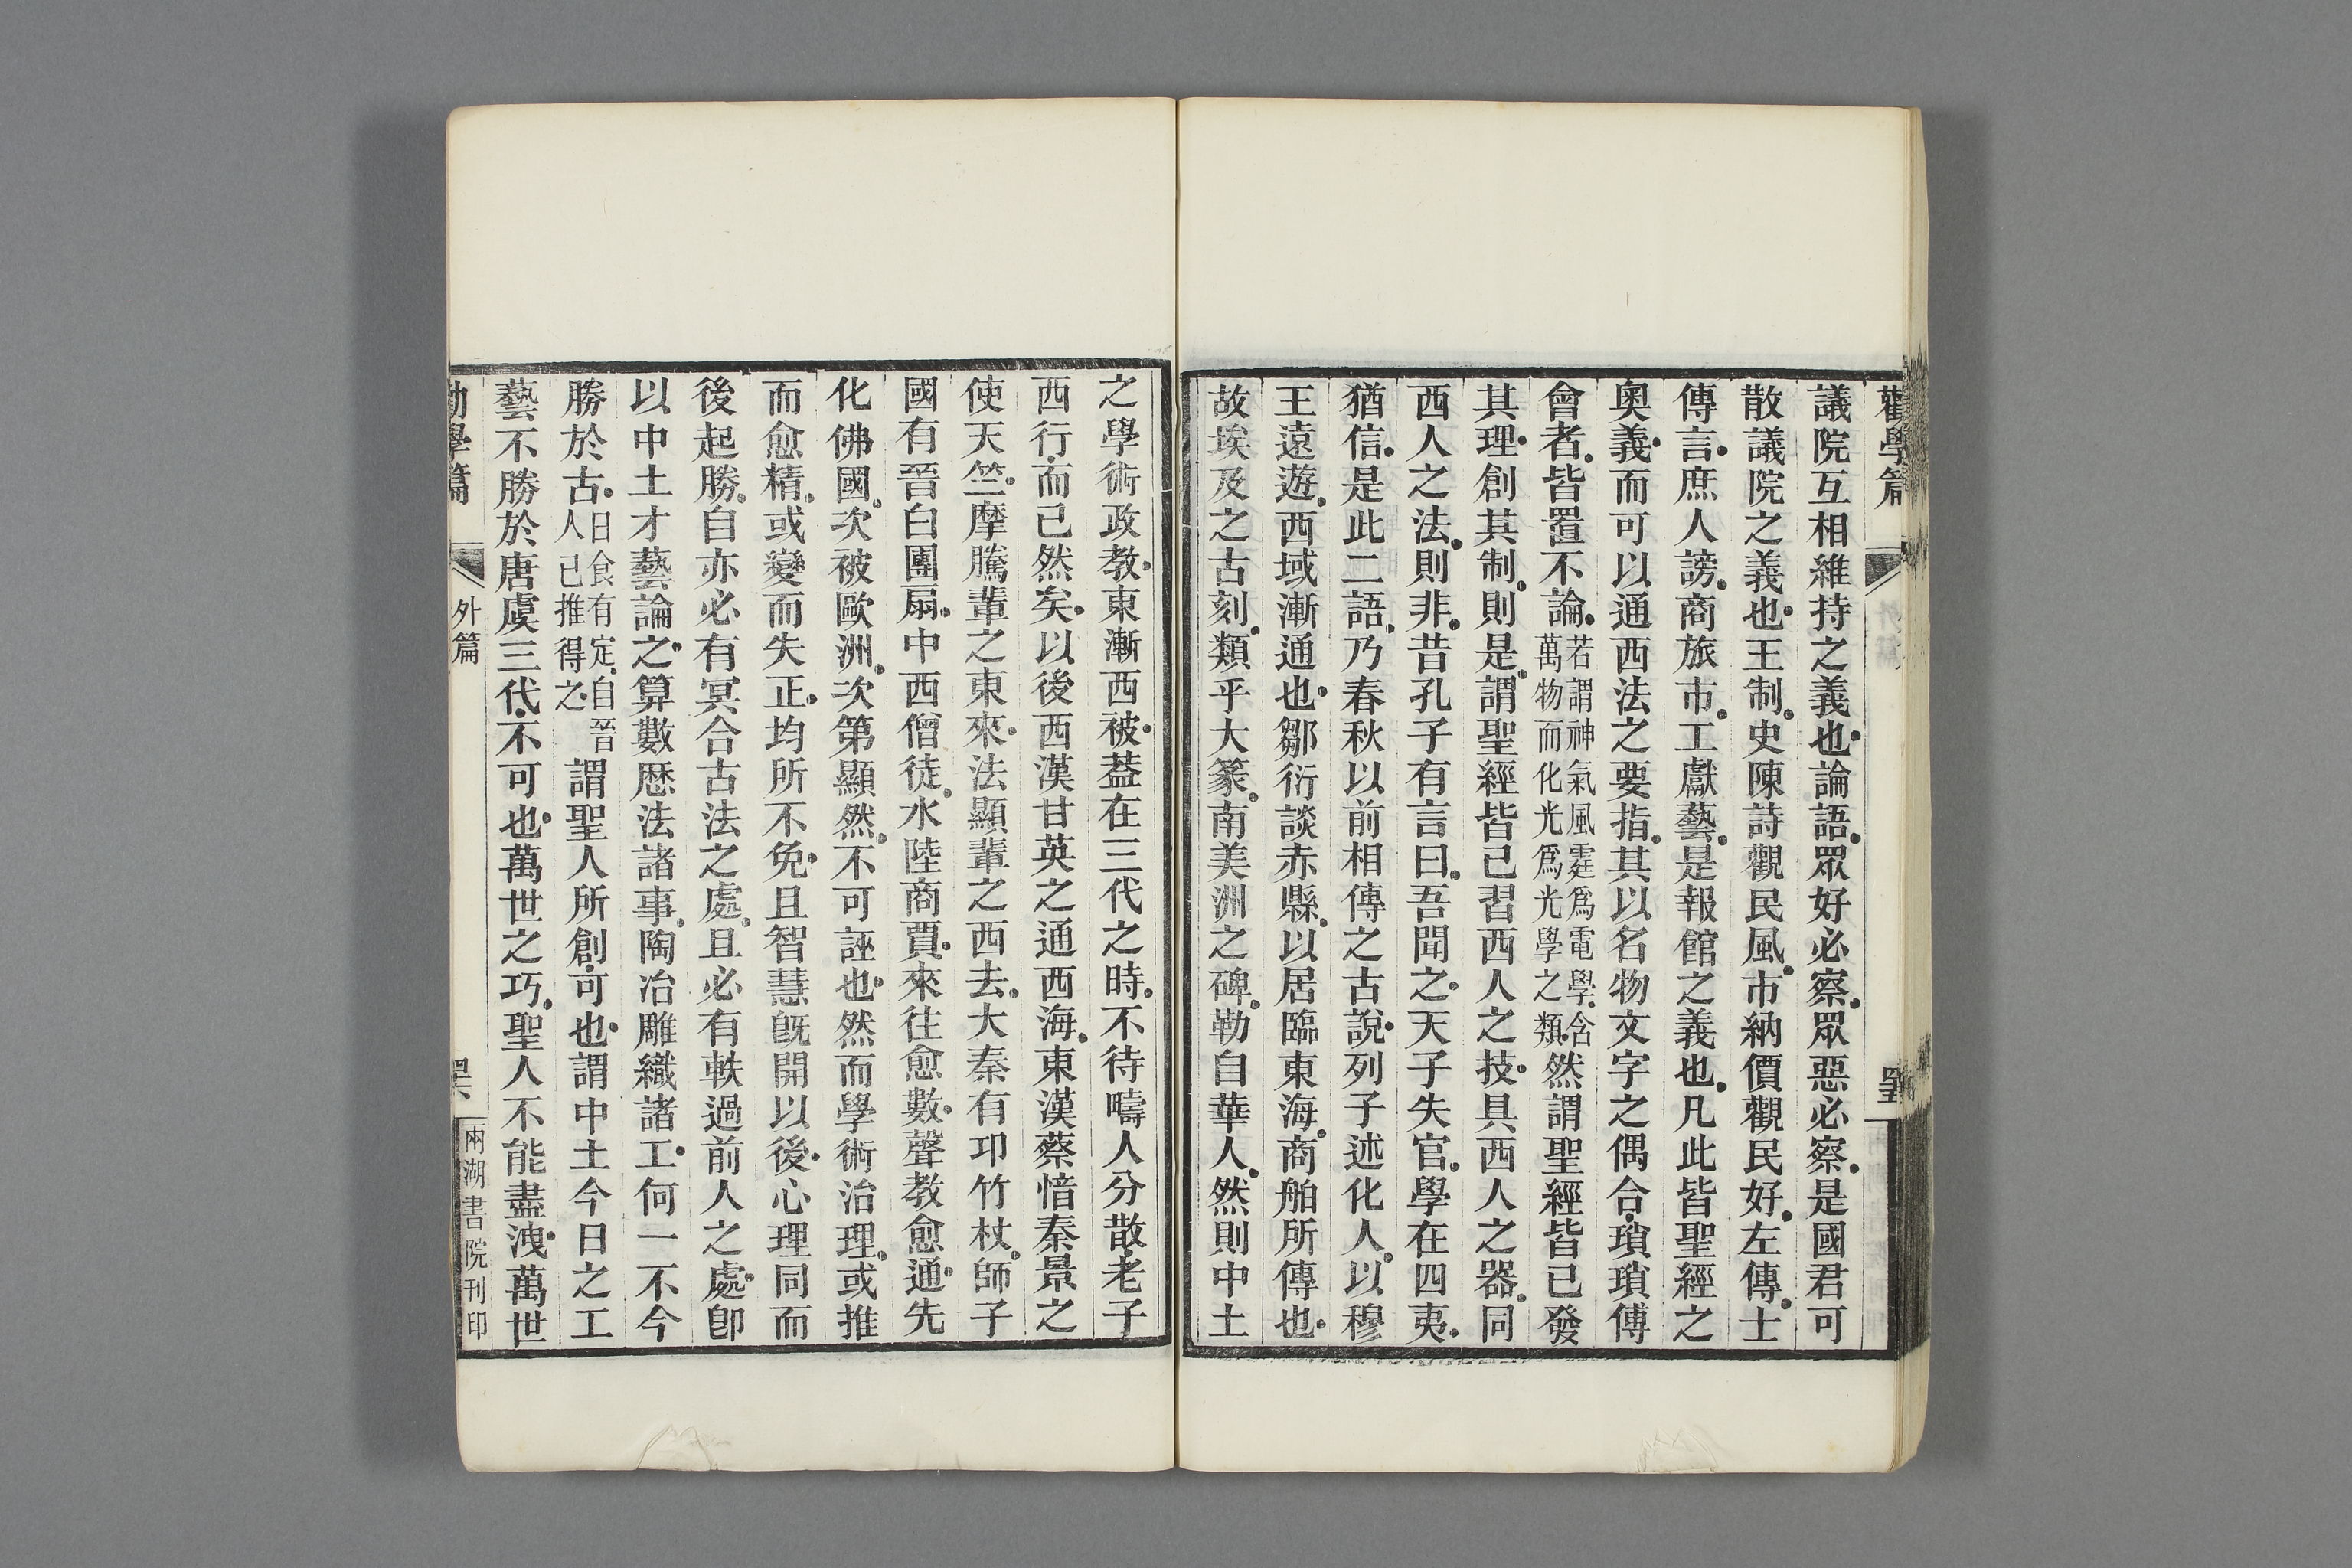 勸學篇
議院互相維持之義也論語眾好必察眾惡必察是國君可
散議院之義也王制史陳詩觀民風市納價觀民好左傳士
傳言庶人謗商旅市工獻藝是報館之義也凡此皆聖經之
奧義而可以通西法之要指其以名物文字之偶合瑣瑣傅
會者皆置不論若謂神氣風霆爲電學含萬物而化光爲光學之類然謂聖經皆已發
其理創其制則是謂聖經皆已習西人之技具西人之器同
西人之法則非昔孔子有言曰吾聞之天子失官學在四夷
猶信是此二語乃春秋以前相傳之古說列子述化人以穆
王遠遊西域漸通也鄒衍談赤縣以居臨東海商舶所傳也
故埃及之古刻類乎大篆南美洲之碑勒自華人然則中土
之學術政教東漸西被葢在三代之時不待疇人分散老子
西行而已然矣以後西漢甘英之通西海東漢蔡愔秦景之
使天竺摩騰輩之東來法顯輩之西去大秦有邛竹杖師子
國有晉白團扇中西僧徒水陸商賈來往愈數聲教愈通先
化佛國次被歐洲次第顯然不可誣也然而學術治理或推
而愈精或變而失正均所不免且智慧旣開以後心理同而
後起勝自亦必有冥合古法之處且必有軼過前人之處卽
以中土才藝論之算數厯法諸事陶冶雕織諸工何一不今
勝於古日食有定自晉人已推得之謂聖人所創可也謂中土今日之工
藝不勝於唐虞三代不可也萬世之巧聖人不能盡洩萬世
勸學篇
外篇
兩湖書院刊印